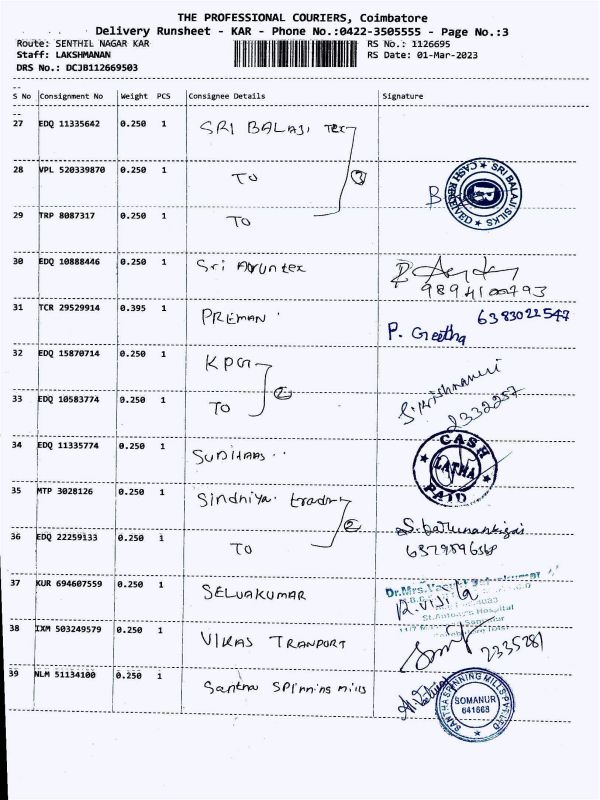 THE PROFESSIONAL COURIERS, Coimbatore
Delivery Runsheet - KAR - Phone No.:0422-3505555 - Page No.:3
Route: SENTHIL NAGAR KAR RS No.: 1126695
Staff: LAKSHMANAN RS Date: 01-Mar-2023
DRS No.: DCJB112669503
S No Consignment No Weight PCS Consignee Details Signature
27 EDQ 11335642 0.250 1 SRI BALAJI Tex
28 VPL 520339870 0.250 1 TO 3
SRI BALAJI SILKS CASH RECEIVED
29 TRP 8087317 0.250 1 TO
30 EDQ 10888446 0.250 1 Sri Arun tex
9894100793
31 TCR 29529914 0.395 1 PREMAN 6383022547
P. Geetha
32 EDQ 15870714 0.250 1 KPG 2
33 EDQ 10583774 0.250 1 TO 2332257
34 EDQ 11335774 0.250 1 CASH LATHA PAID
35 MTP 3028126 0.250 1 2
36 EDQ 22259133 0.250 1 TO
37 KUR 694607559 0.250 1 SELVAKUMAR
R. Vijila
St. Antony's Hospital
38 IXM 503249579 0.250 1 VIKAS TRANPORT 2335281
39 NLM 51134100 0.250 1 Santha SPinning mills
SANTHA SPINNING MILLS PVT LTD SOMANUR 641668